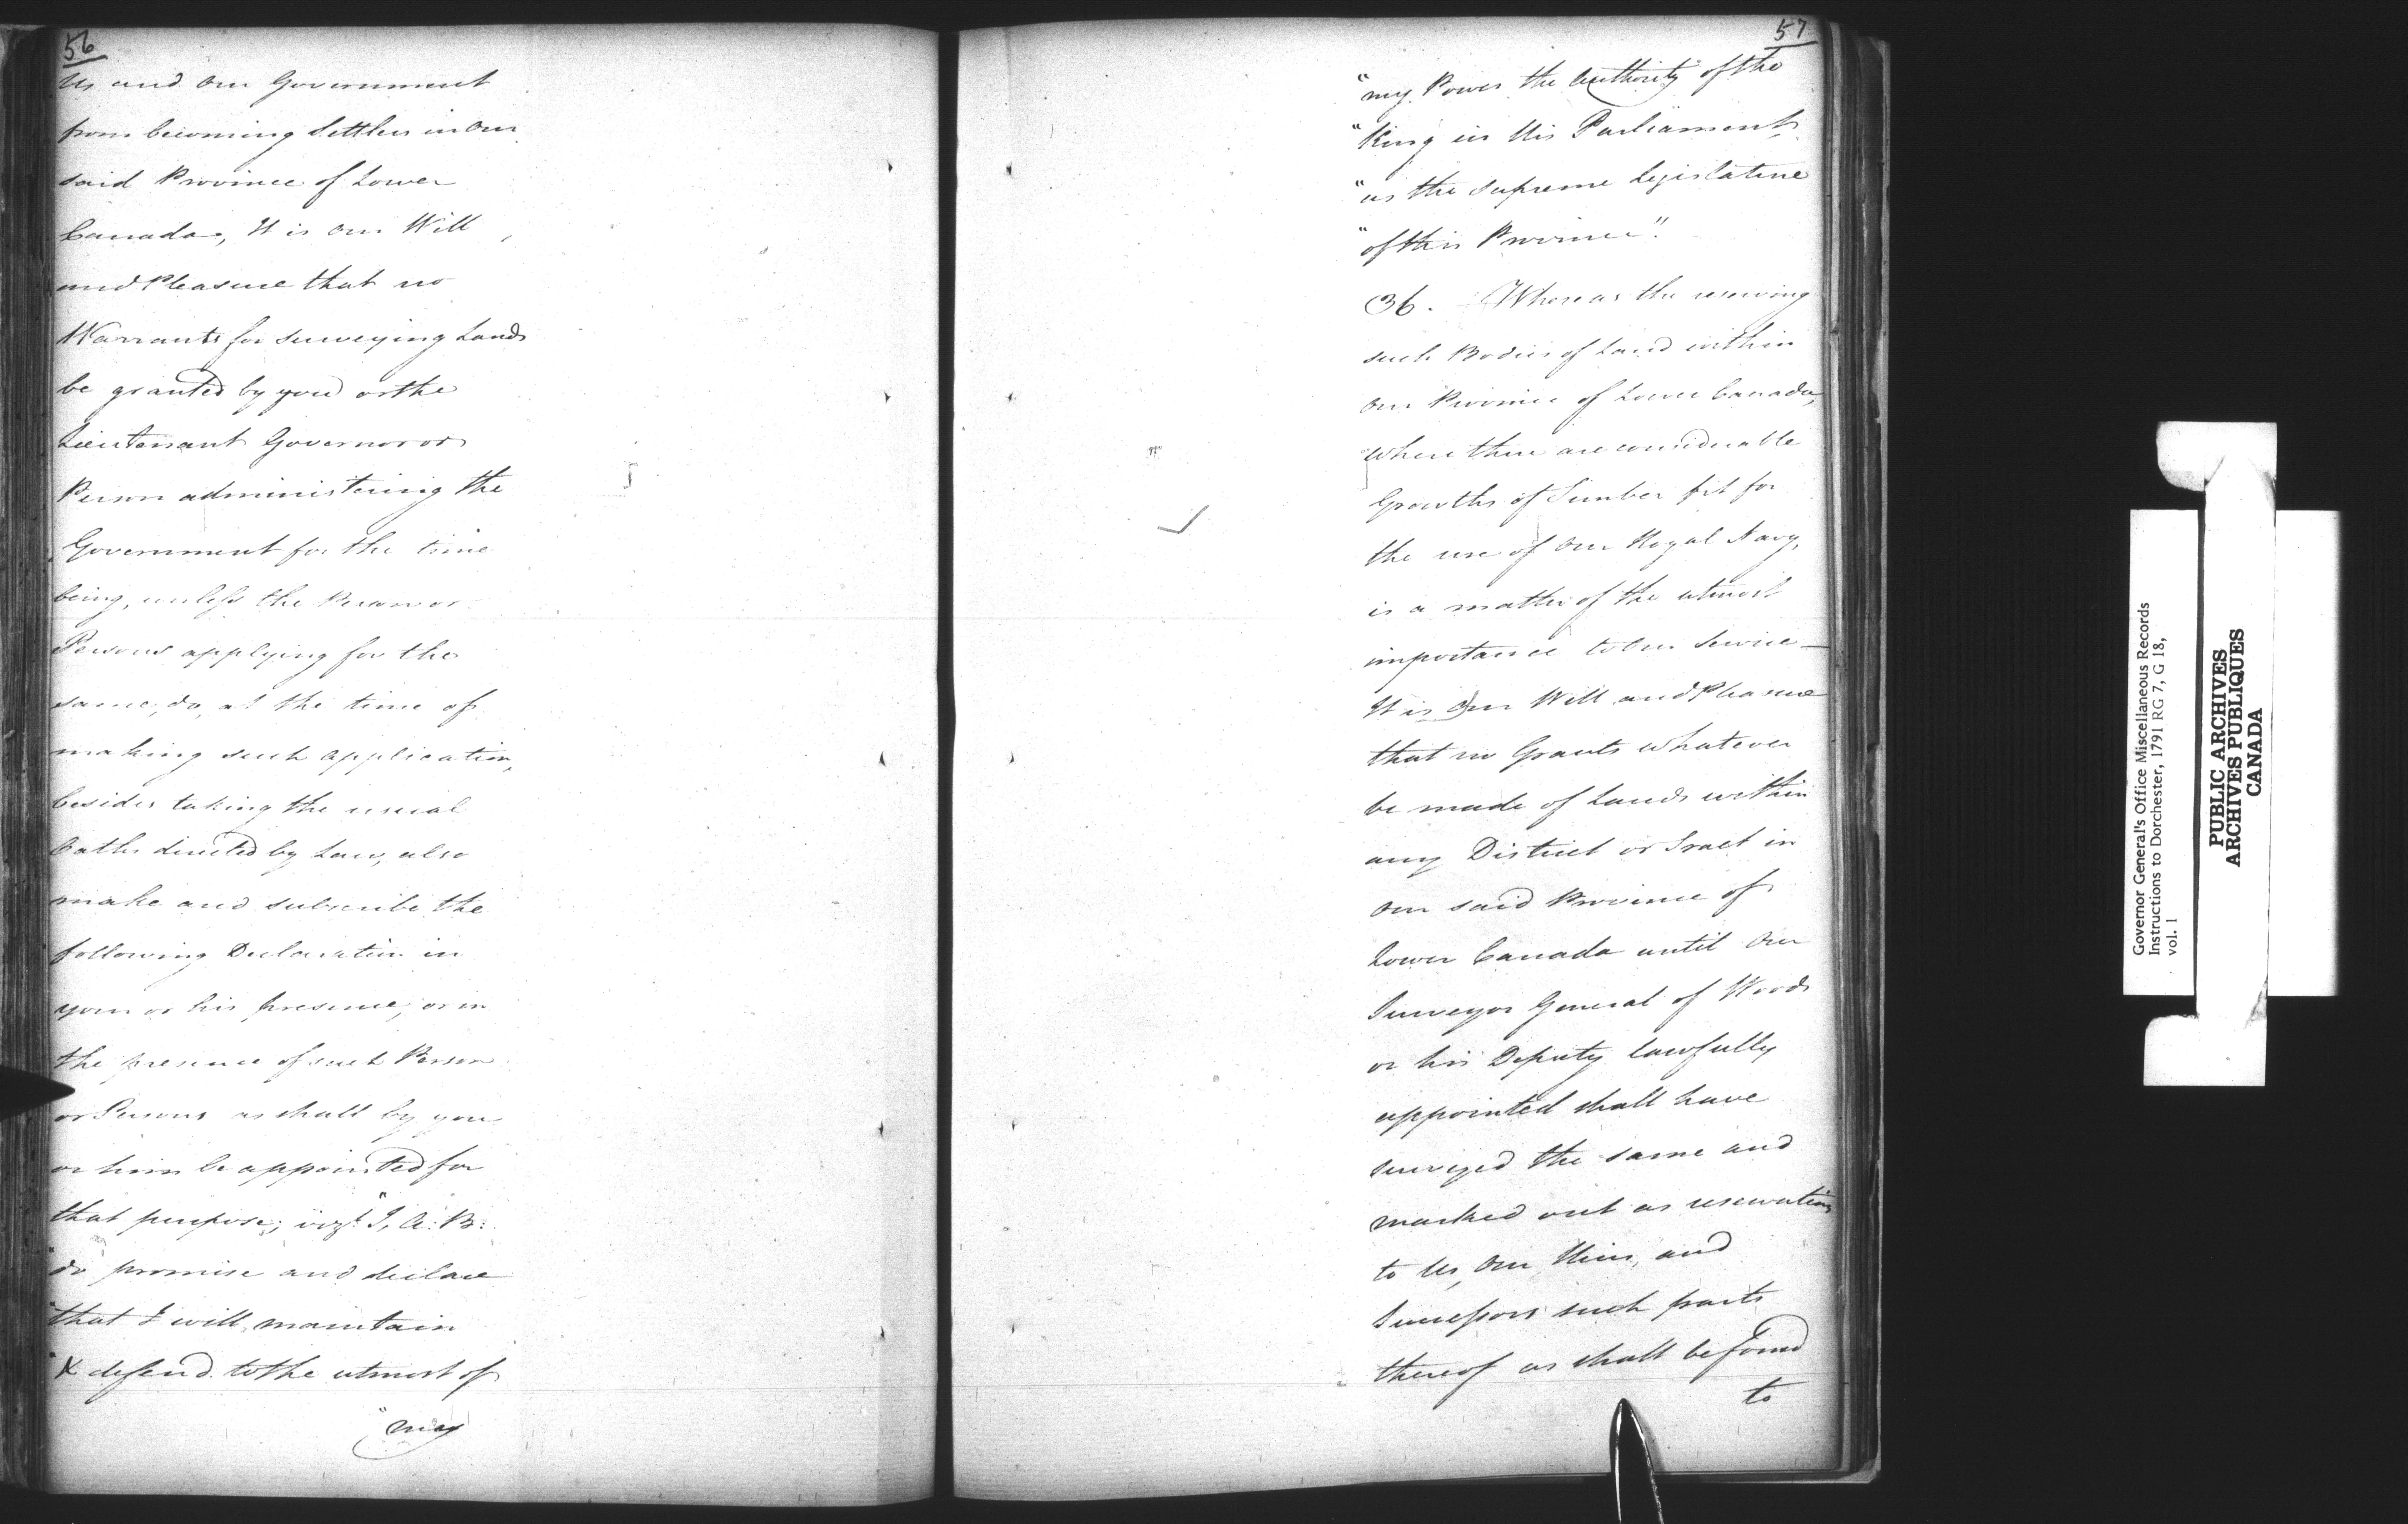 56
Us and Our Government
from becoming Settlers in Our
said Province of Lower
Canada, It is Our Will
and Pleasure that no
Warrants for surveying Lands
be granted by you or the
Lieutenant Governor or
Person administering the
Government for the time
being, unless the Person or
Persons applying for the
same, do, at the time of
making such application,
besides taking the usual
Oaths directed by Law, also
make and subscribe the
following Declaration in
your or his presence, or in
the presence of such Person
or Persons as shall by you
or him be appointed for
that purpose; vizt. "I, A. B:
"do promise and declare
"that I will maintain
"& defend to the utmost of
"my
57
"my Power the Authority of the
"King in His Parliament,
"as the supreme Legislature
"of this Province".
36. Whereas the reserving
such Bodies of Land within
Our Province of Lower Canada,
where there are considerable
Growths of Timber fit for
the use of Our Royal Navy,
is a matter of the utmost
importance to Our Service _
It is Our Will and Pleasure
that no Grants whatever
be made of Lands within
any District or Tract in
Our said Province of
Lower Canada until Our
Surveyor General of Woods
or his Deputy lawfully
appointed shall have
surveyed the same and
marked out as reservations
to Us, Our Heirs, and
Successors such parts
thereof as shall be found
to
Governor General's Office Miscellaneous Records
Instructions to Dorchester, 1791 RG 7, G 18,
vol. 1
PUBLIC ARCHIVES
ARCHIVES PUBLIQUES
CANADA